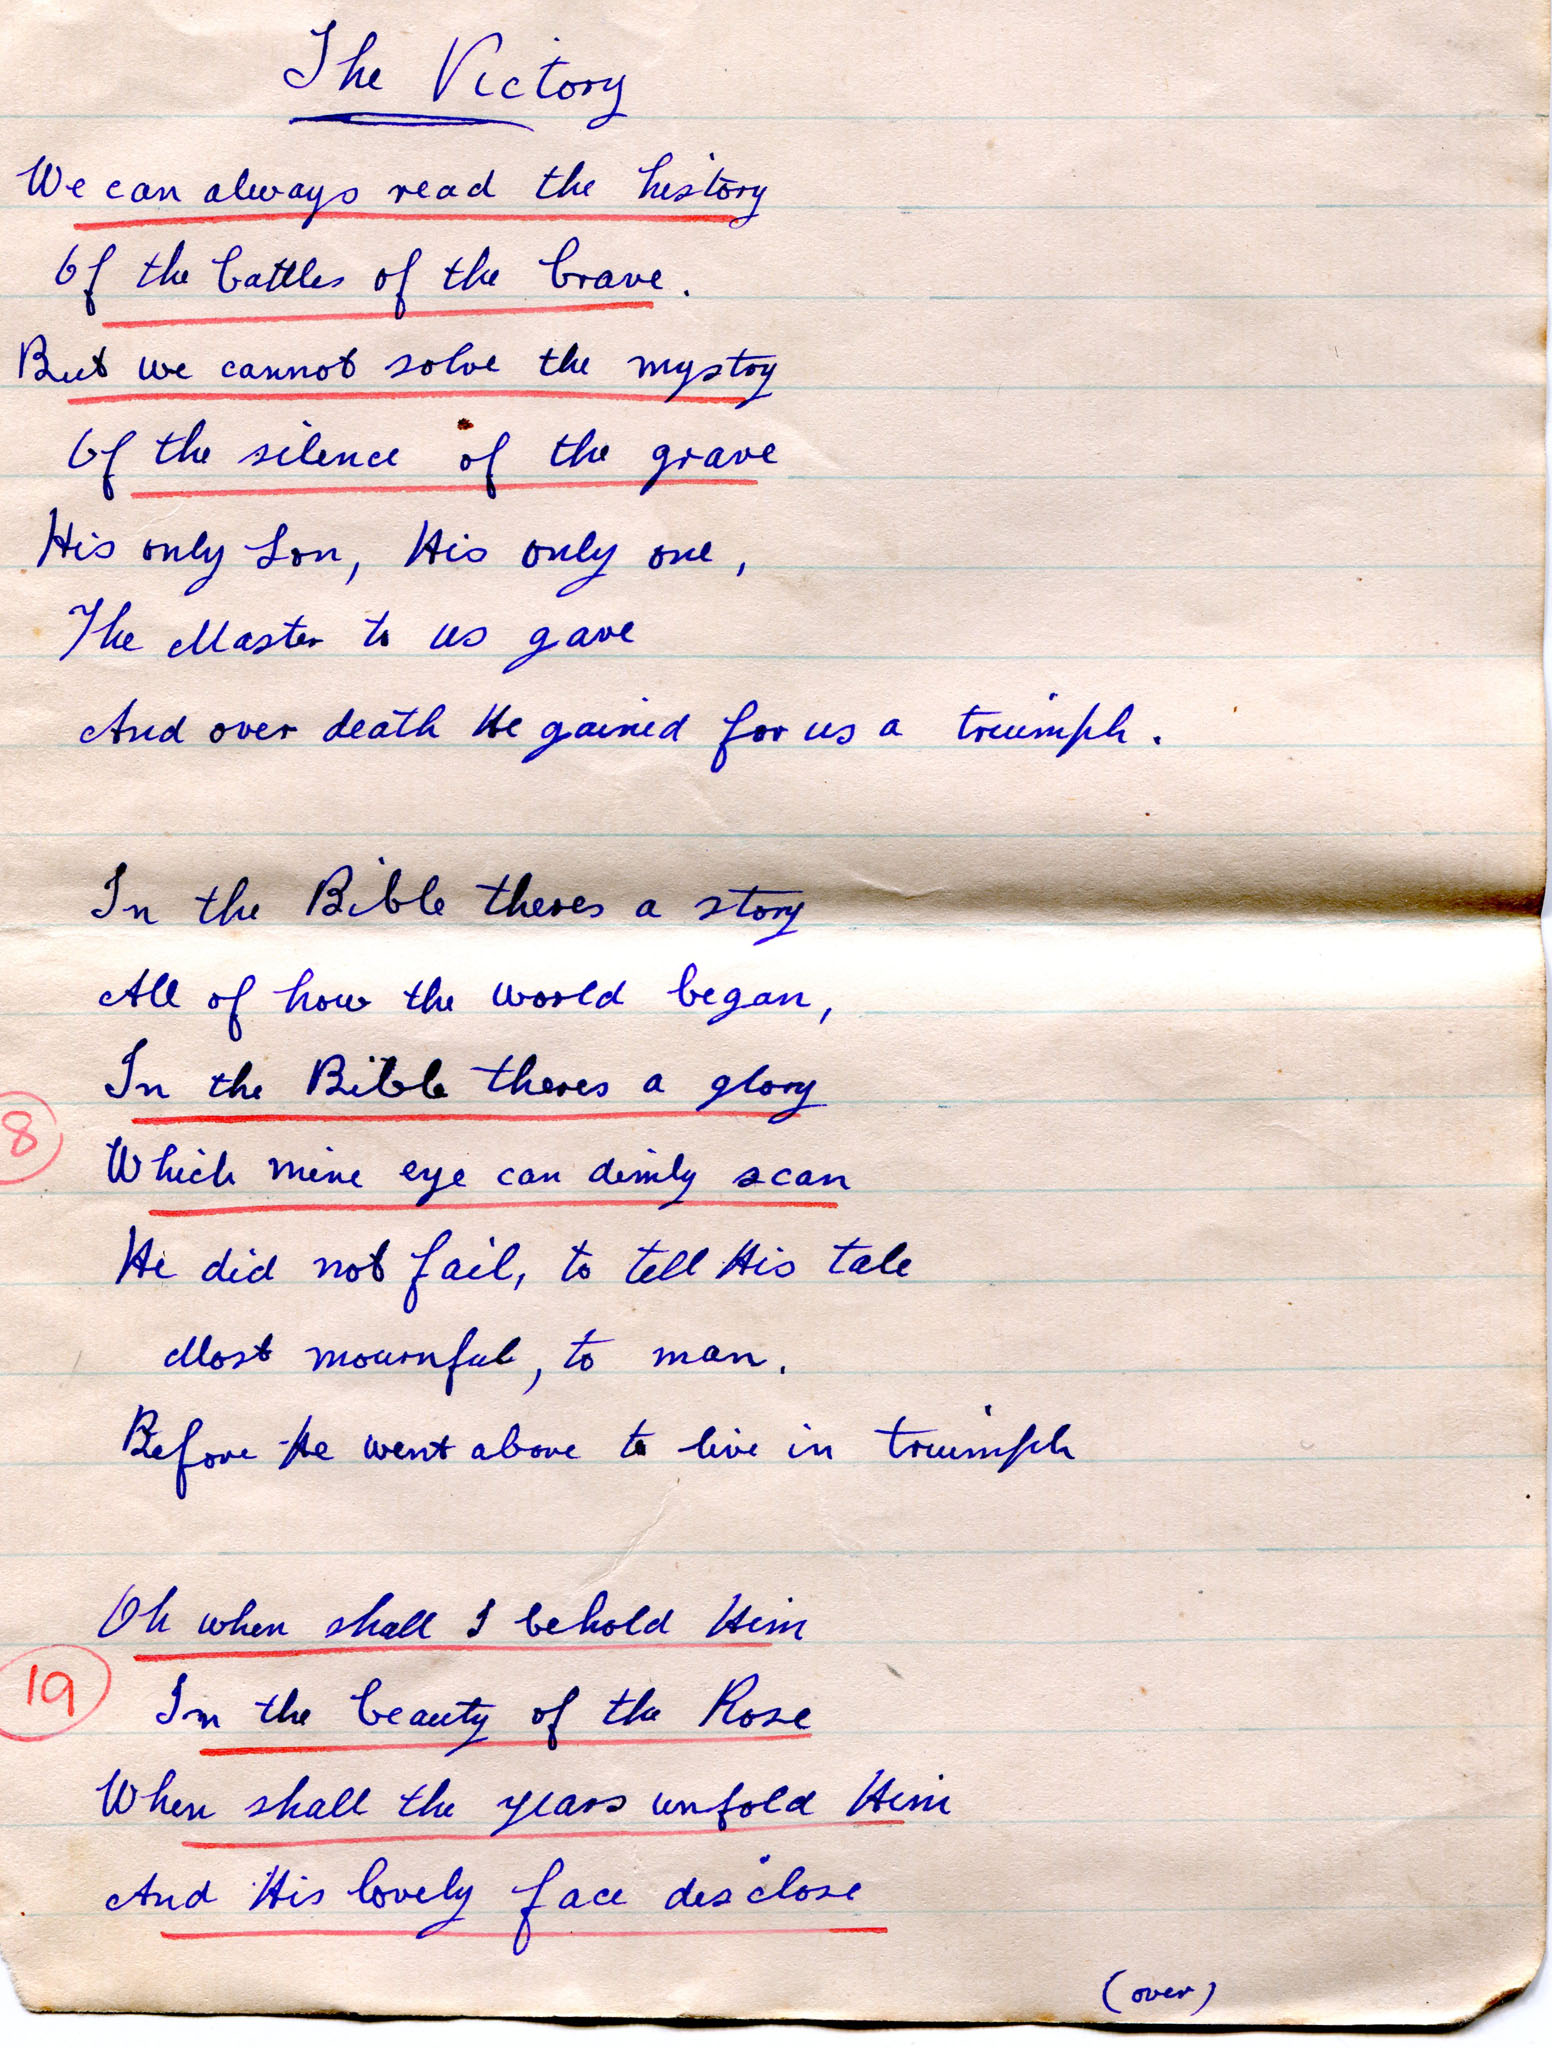 The Victory
We can always read the history
Of the battles of the brave.
But we cannot solve the mystry
Of the silence of the grave
His only Son, His only one,
The Master to us gave
And over death He gained for us a triumph.
In the Bible theres a story
All of how the world began,
In the Bible theres a glory
8
Which mine eye can dimly scan
He did not fail, to tell His tale
Most mournful, to man.
Before He went above to live in triumph
Oh when shall I behold Him
19
In the beauty of the Rose
When shall the years unfold Him
And His lovely face disclose
(over)